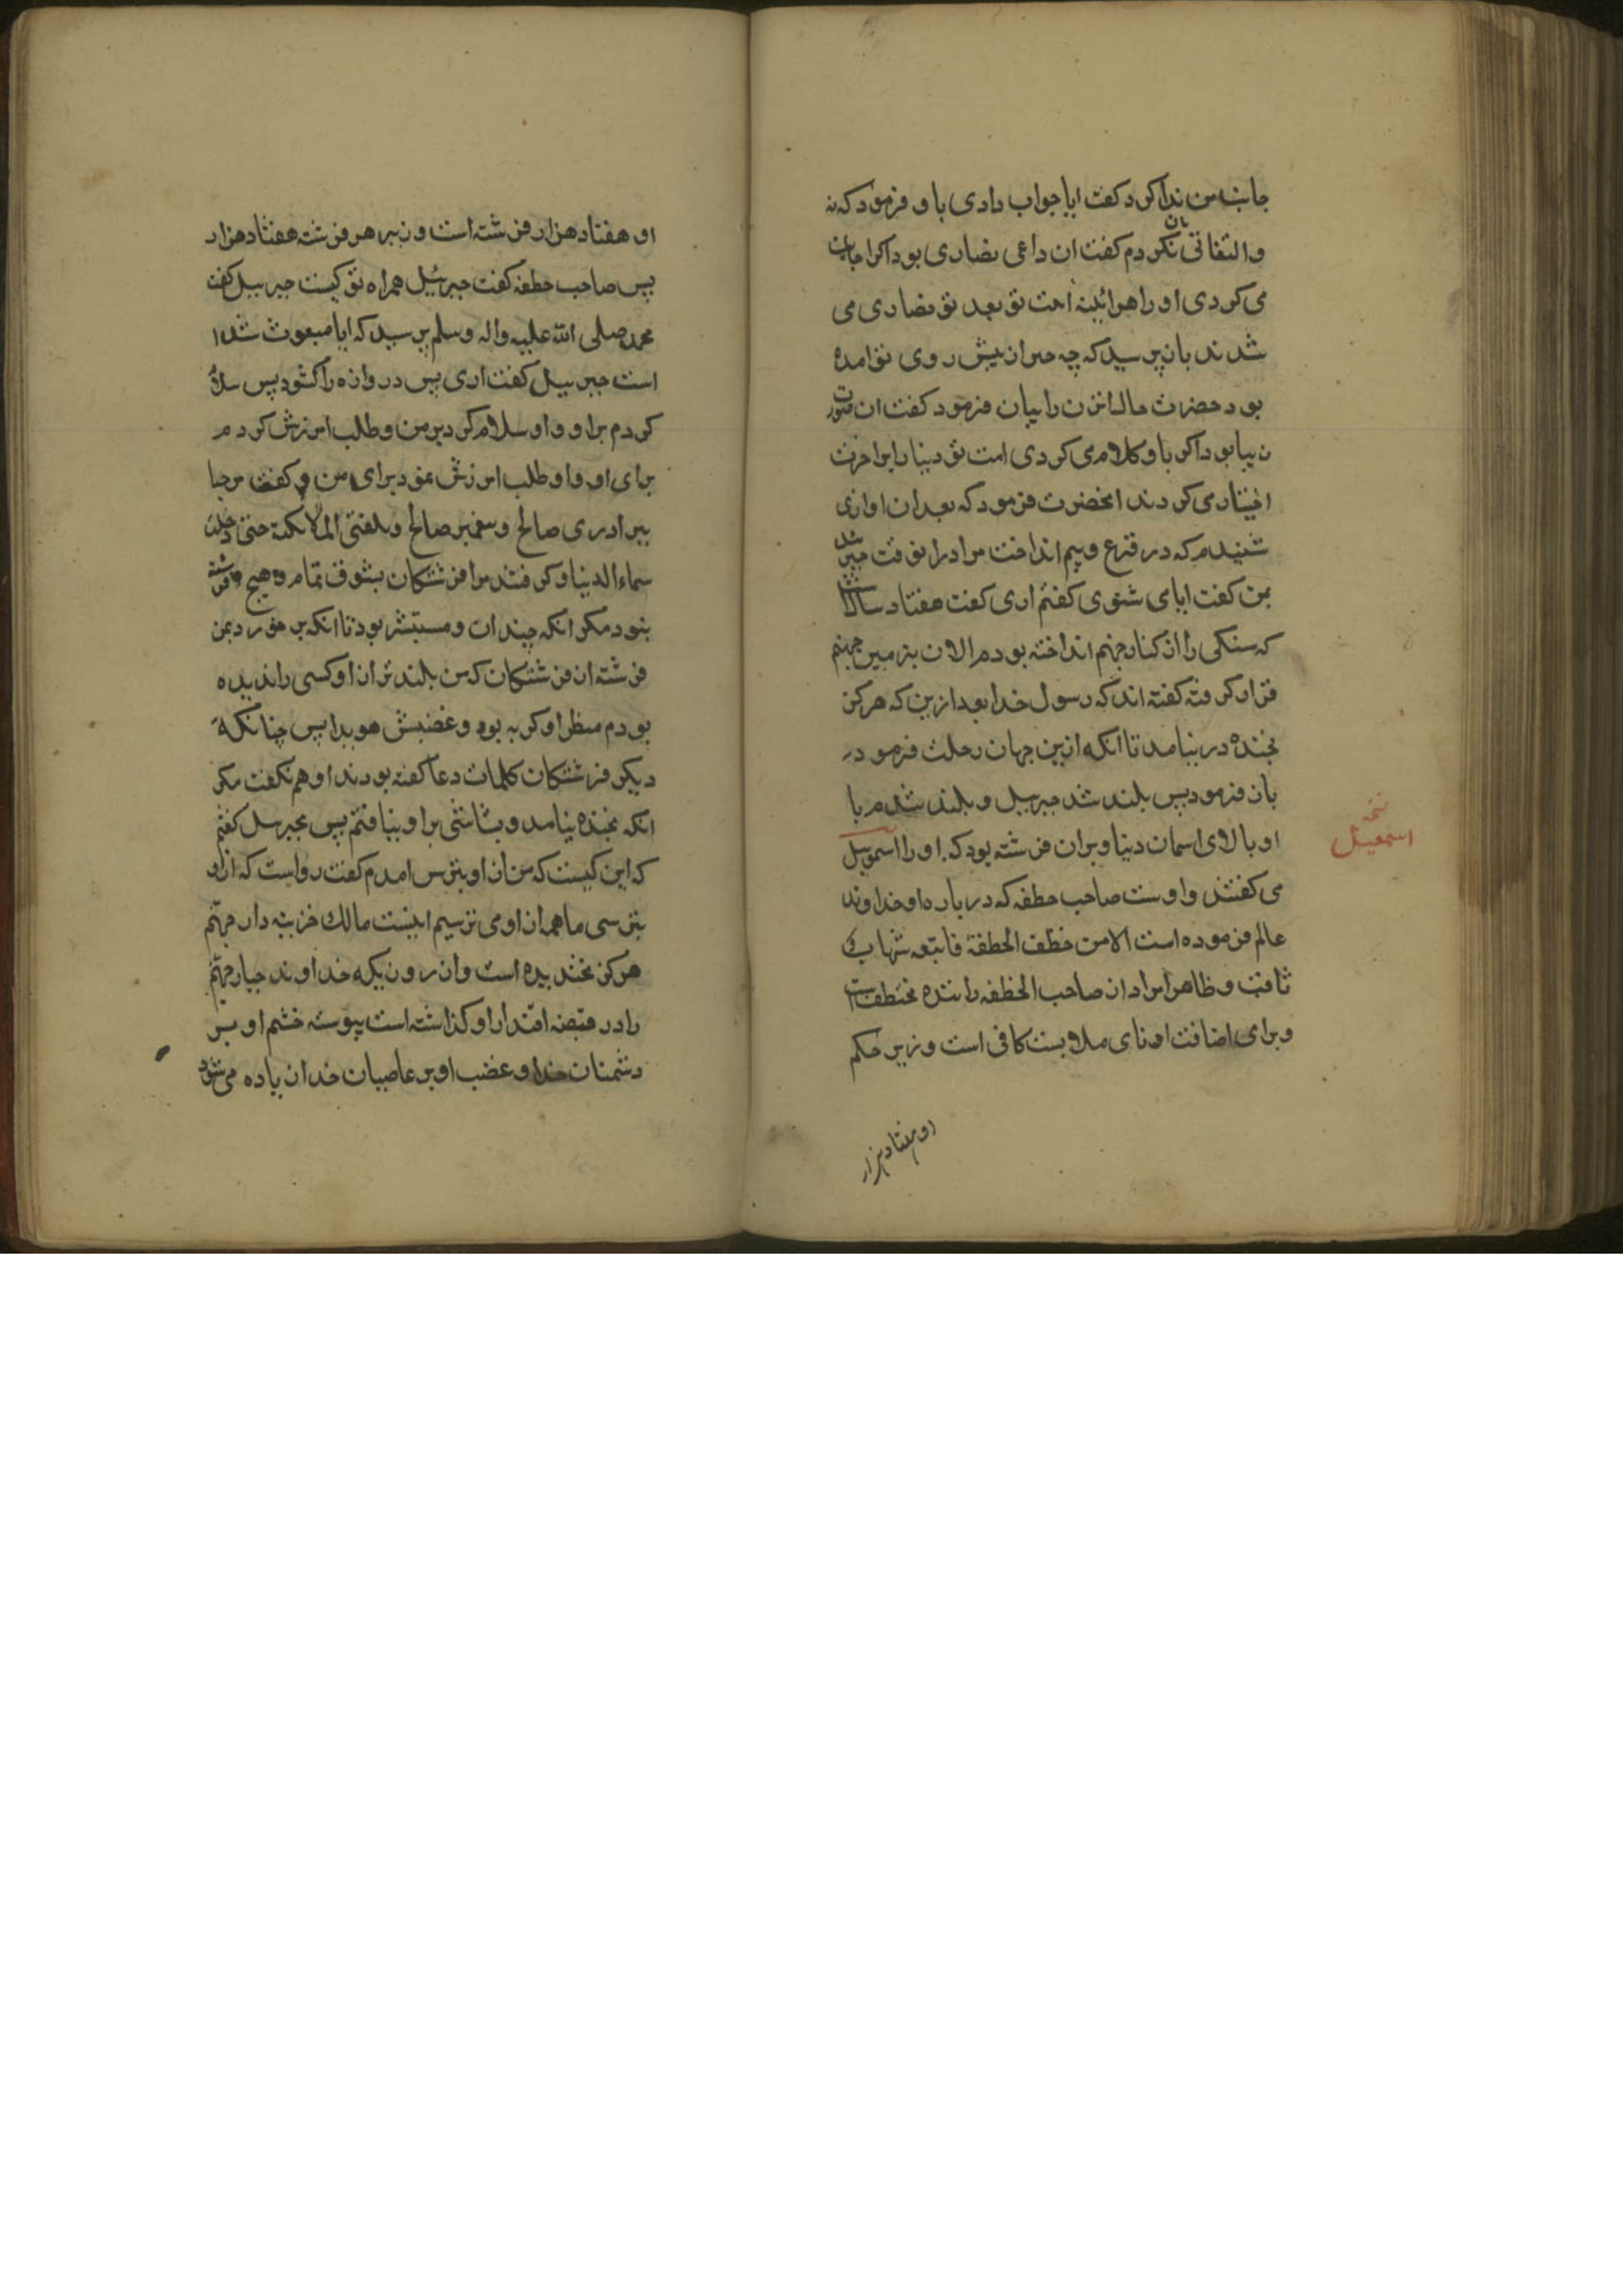 جانب من ندا کرد کفت ایا جواب دادی باو فرمود که نه
والتفاتی بان نکردم کفت ان داعی نصاری بود اکر اجابت
می کردی او را هرائینه امت تو بعد تو نصاری می
شدند بازپرسید که چه حیز ان پیش روی تو امده
بود حضرت حال انزن را بیان فرمود کفت ان صورت
دنیا بود اکر باو کلام می کردی امت تو دنیا را بر اخرت
اختیار می کردند انحضرت فرمود که بعد ازان اوازی
شنیدم که در فزع و بیم انداخت مرا درانوقت جبرئیل
بمن کفت ایا می شنوی کفتم اری کفت هفتاد سال
که سنکی را از کنار جهنم انداخته بودم الان بزمین جهنم
قرار کرفته کفته اند که رسول خدا بعد ازین که هرکز
بخنده در نیامد تا انکه ازین جهان رحلت فرمود در
بان فرمود پس بلند شد جبرییل و بلند شدم با
او بالای اسمان دنیا و بران فرشته بود که او را اسمویل
می کفتند واوست صاحب خطفه که در باره او خداوند
عالم فرموده است الا من خطف الخطفة فاتبعه شهاب
ثاقب وظاهرا مراد از صاحب الخطفه راننده مختطف است
وبرای اضافت ادنای ملابست کافی است وزیر حکم
او هفتاد هزار
نسخه
اسمعیل
او هفتاد هزار فرشته است و زیر هر فرشته هفتاد هزار
پس صاحب خطفه کفت جبرئیل همراه تو کیست جبرییل کفت
محمد صلی الله علیه واله وسلم پرسید که ایا مبعوث شده
است جبرییل کفت اری پس دروازه را کشود پس سلام
کردم براو واو سلام کرد برمن وطلب امرزش کردم
برای او واو طلب امرزش نمود برای من و کفت مرحبا
ببرادری صالح وپیغمبر صالح وتلقتنی الملائکة حتی دخلت
سماء الدنیا وکرفتند مرا فرشتکان بشوق تمام وهیچ فرشته
نبود مکر انکه خندان ومستبشر بود تا انکه برخورد بمن
فرشته از فرشتکان که من بلندتر از او کسی را ندیده
بودم منظر او کریه بود وغضبش هویدا پس چنانکه
دیکر فرشتکان کلمات دعا کفته بودند او هم نکفت مکر
انکه بخنده نیامد و بشاشتی براو نیافتم پس بجبرییل کفتم
که این کیست که من از او بترس امدم کفت رواست که از او
بترسی ما همه از او می ترسیم اینست مالک خزینه دار جهنم
هرکز نخندیده است و از روزیکه خداوند جبار جهنم
را در قبضه اقتدار او کذاشته است پیوسته خشم او بر
دشمنان خدا وغضب او بر عاصیان خدا زیاده می شود